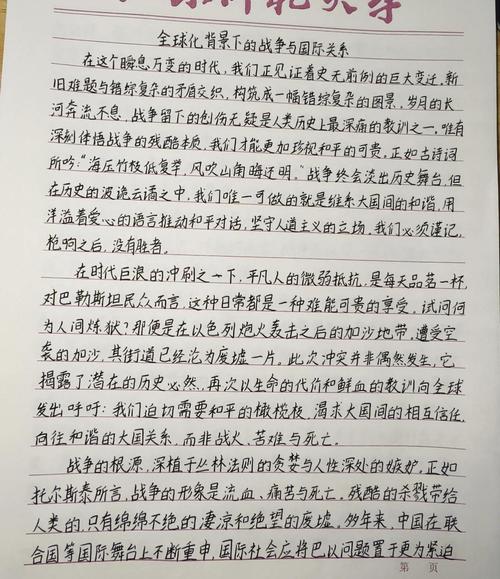 全球化背景下的战争与国际关系
在这个瞬息万变的时代，我们正见证着史无前例的巨大变迁，新
旧难题与错综复杂的矛盾交织，构筑成一幅错综复杂的图景，岁月的长
河奔流不息，战争留下的创伤无疑是人类历史上最深痛的教训之一，唯有
深刻体悟战争的残酷本质，我们才能更加珍视和平的可贵，正如古诗词
所吟："海压竹枝低复举，风吹山角晦还明。"战争终会淡出历史舞台，但
在历史的波诡云谲之中，我们唯一可做的就是维系大国间的和谐，用
洋溢着爱心的语言推动和平对话，坚守人道主义的立场，我们必须谨记，
枪响之后，没有胜者。
在时代巨浪的冲刷之一下，平凡人的微弱抵抗，是每天品茗一杯，
对巴勒斯坦民众而言，这种日常都是一种难能可贵的享受，试问何
为人间炼狱？那便是在以色列炮火轰击之后的加沙地带，遭受空
袭的加沙，其街道已经沦为废墟一片。此次冲突并非偶然发生，它
揭露了潜在的历史必然，再次以生命的代价和鲜血的教训向全球
发出呼吁：我们迫切需要和平的橄榄枝，渴求大国间的相互信任，
向往和谐的大国关系，而非战火、苦难与死亡。
战争的根源，深植于丛林法则的贪婪与人性深处的嫉妒，正如
托尔斯泰所言，战争的形象是流血、痛苦与死亡。残酷的杀戮带给
人类的，只有绵绵不绝的凄凉和绝望的废墟，多年来，中国在联
合国等国际舞台上不断重申，国际社会应将巴以问题置于更为紧迫
第 页